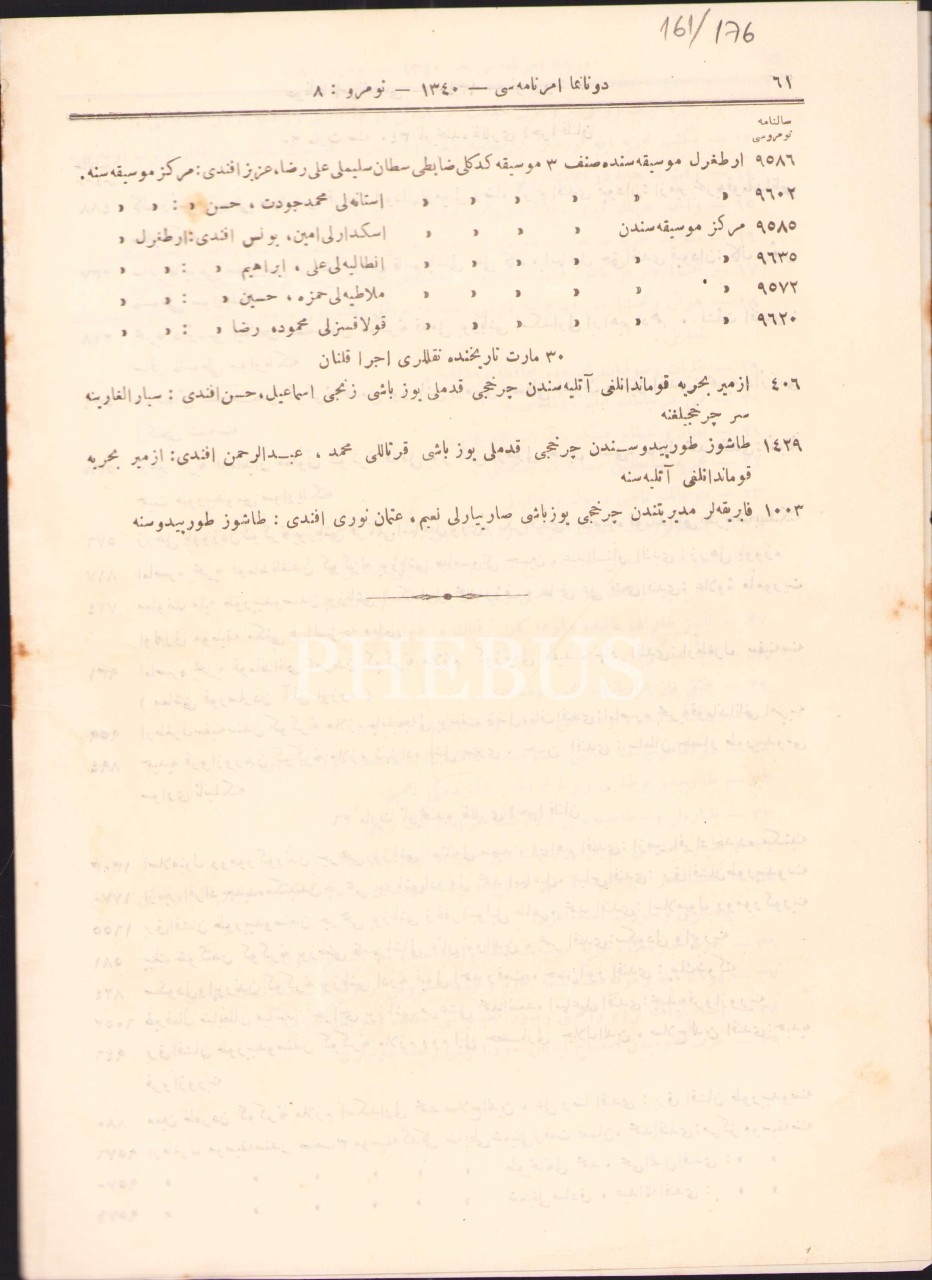 161/176
٦١ دونانما امرنامه‌سی — ١٣٤٠ — نومرو : ٨
سالنامه
نومروسی
٩٥٨٦ ارطغرل موسیقه‌سنده صنف ٣ موسیقه کدکلی ضابطی سطان سلیملی علی رضا، عزیز افندی : مرکز موسیقه سنه .
٩٦٠٢ » » » » » » استانه‌لی محمد جودت ، حسن » : » »
٩٥٨٥ مرکز موسیقه سندن » » » » اسکدارلی امین، یونس افندی : ارطغرل »
٩٦٣٥ » » » » » » انطالیه‌لی علی ، ابراهیم » : » »
٩٥٧٢ » » » » » » ملاطیه‌لی حمزه ، حسین » : » »
٩٦٢٠ » » » » » » قولاقسزلی محموده رضا » : » »
٣٠ مارت تاریخنده نقللری اجرا قلنان
٤٠٦ ازمیر بحریه قوماندانلغی آتلیه سندن چرخجی قدملی یوز باشی زنجی اسماعیل، حسن افندی : سیار الغارینه
سر چرخجیلغنه
١٤٢٩ طاشوز طورپیدوسندن چرخجی قدملی یوز باشی قرتاللی محمد ، عبدالرحمن افندی : ازمیر بحریه
قوماندانلغی آتلیه سنه
١٠٠٣ فابریقه‌لر مدیریتندن چرخجی یوزباشی صاریارلی نعیم، عثمان نوری افندی : طاشوز طورپیدوسنه
PHEBUS